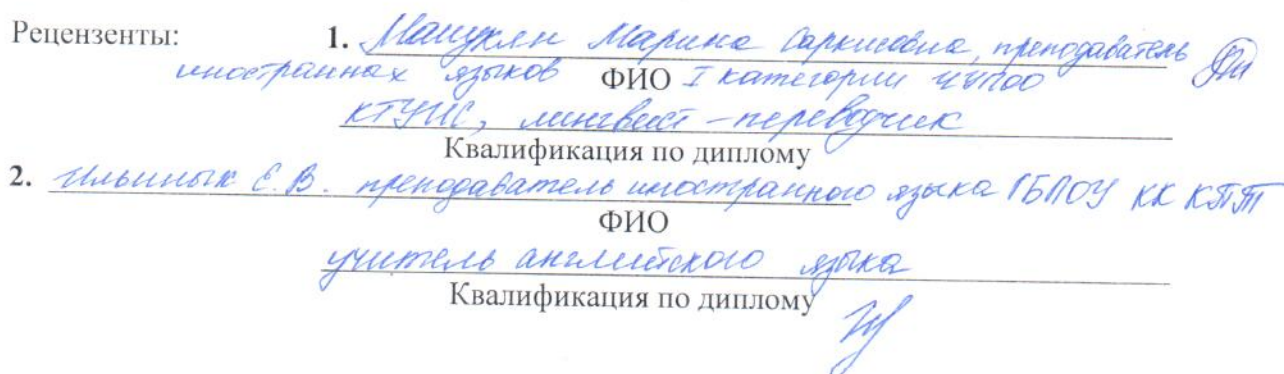 Рецензенты: 1. Мащукян Марина Саркисовна, преподаватель
иностранных языков ФИО I категории ЧУПОО
КТУИС, лингвист-переводчик
Квалификация по диплому
2. Ильиных Е.В. преподаватель иностранного языка ГБПОУ КК КТТ
ФИО
учитель английского языка
Квалификация по диплому